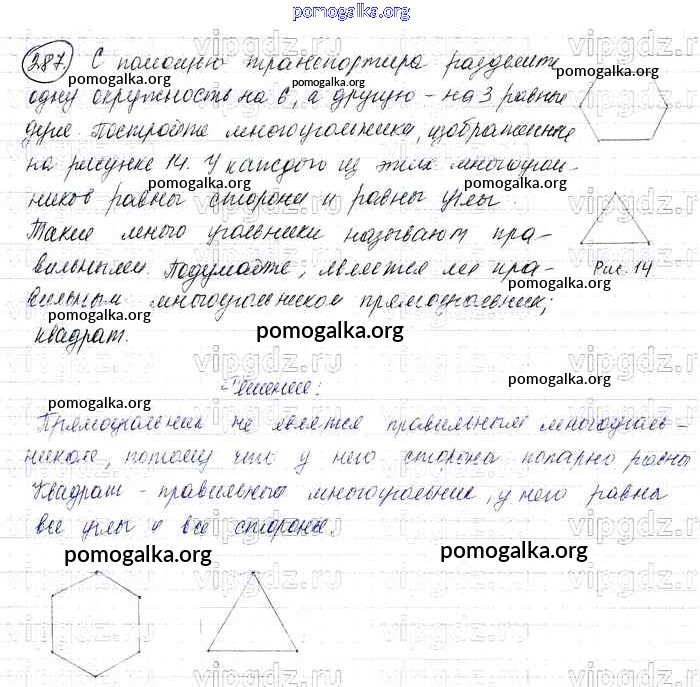 pomogalka.org
287. С помощью транспортира разделите
одну окружность на 6, а другую – на 3 равные
дуги. Постройте многоугольники, изображенные
на рисунке 14. У каждого из этих многоуголь-
ников равны стороны и равны углы.
Такие много угольники называют пра-
вильными. Подумайте, является ли пра-
вильным многоугольником прямоугольник;
квадрат.
Рис. 14
Решение:
Прямоугольник не является правильным многоуголь-
ником, потому что у него стороны попарно равны
Квадрат - правильный многоугольник, у него равны
все углы и все стороны.
pomogalka.org
pomogalka.org
pomogalka.org
pomogalka.org
pomogalka.org
pomogalka.org
pomogalka.org
pomogalka.org
pomogalka.org
pomogalka.org
pomogalka.org
vipgdz.ru